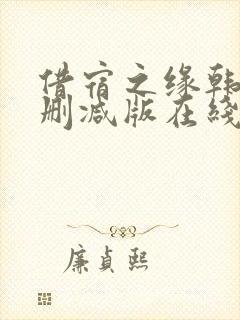 借宿之缘韩
删减版在线
廉贞熙